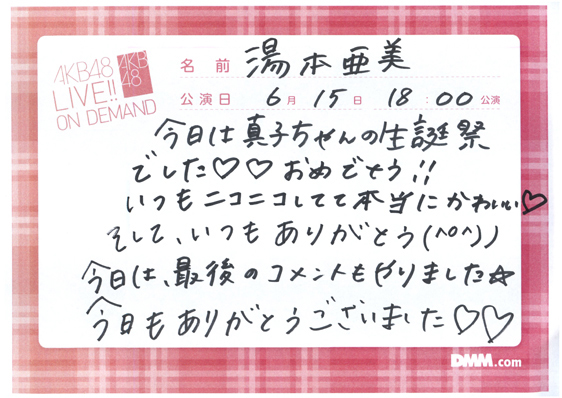 AKB48
LIVE!!
ON DEMAND
AKB
48
名前 湯本亜美
公演日 6月 15日 18:00 公演
今日は真子ちゃんの生誕祭
でした♡♡おめでとう!!
いつもニコニコしてて本当にかわいい♡
そして、いつもありがとう(^o^)ノ
今日は、最後のコメントもやりました☆
今日もありがとうございました♡♡
DMM.com